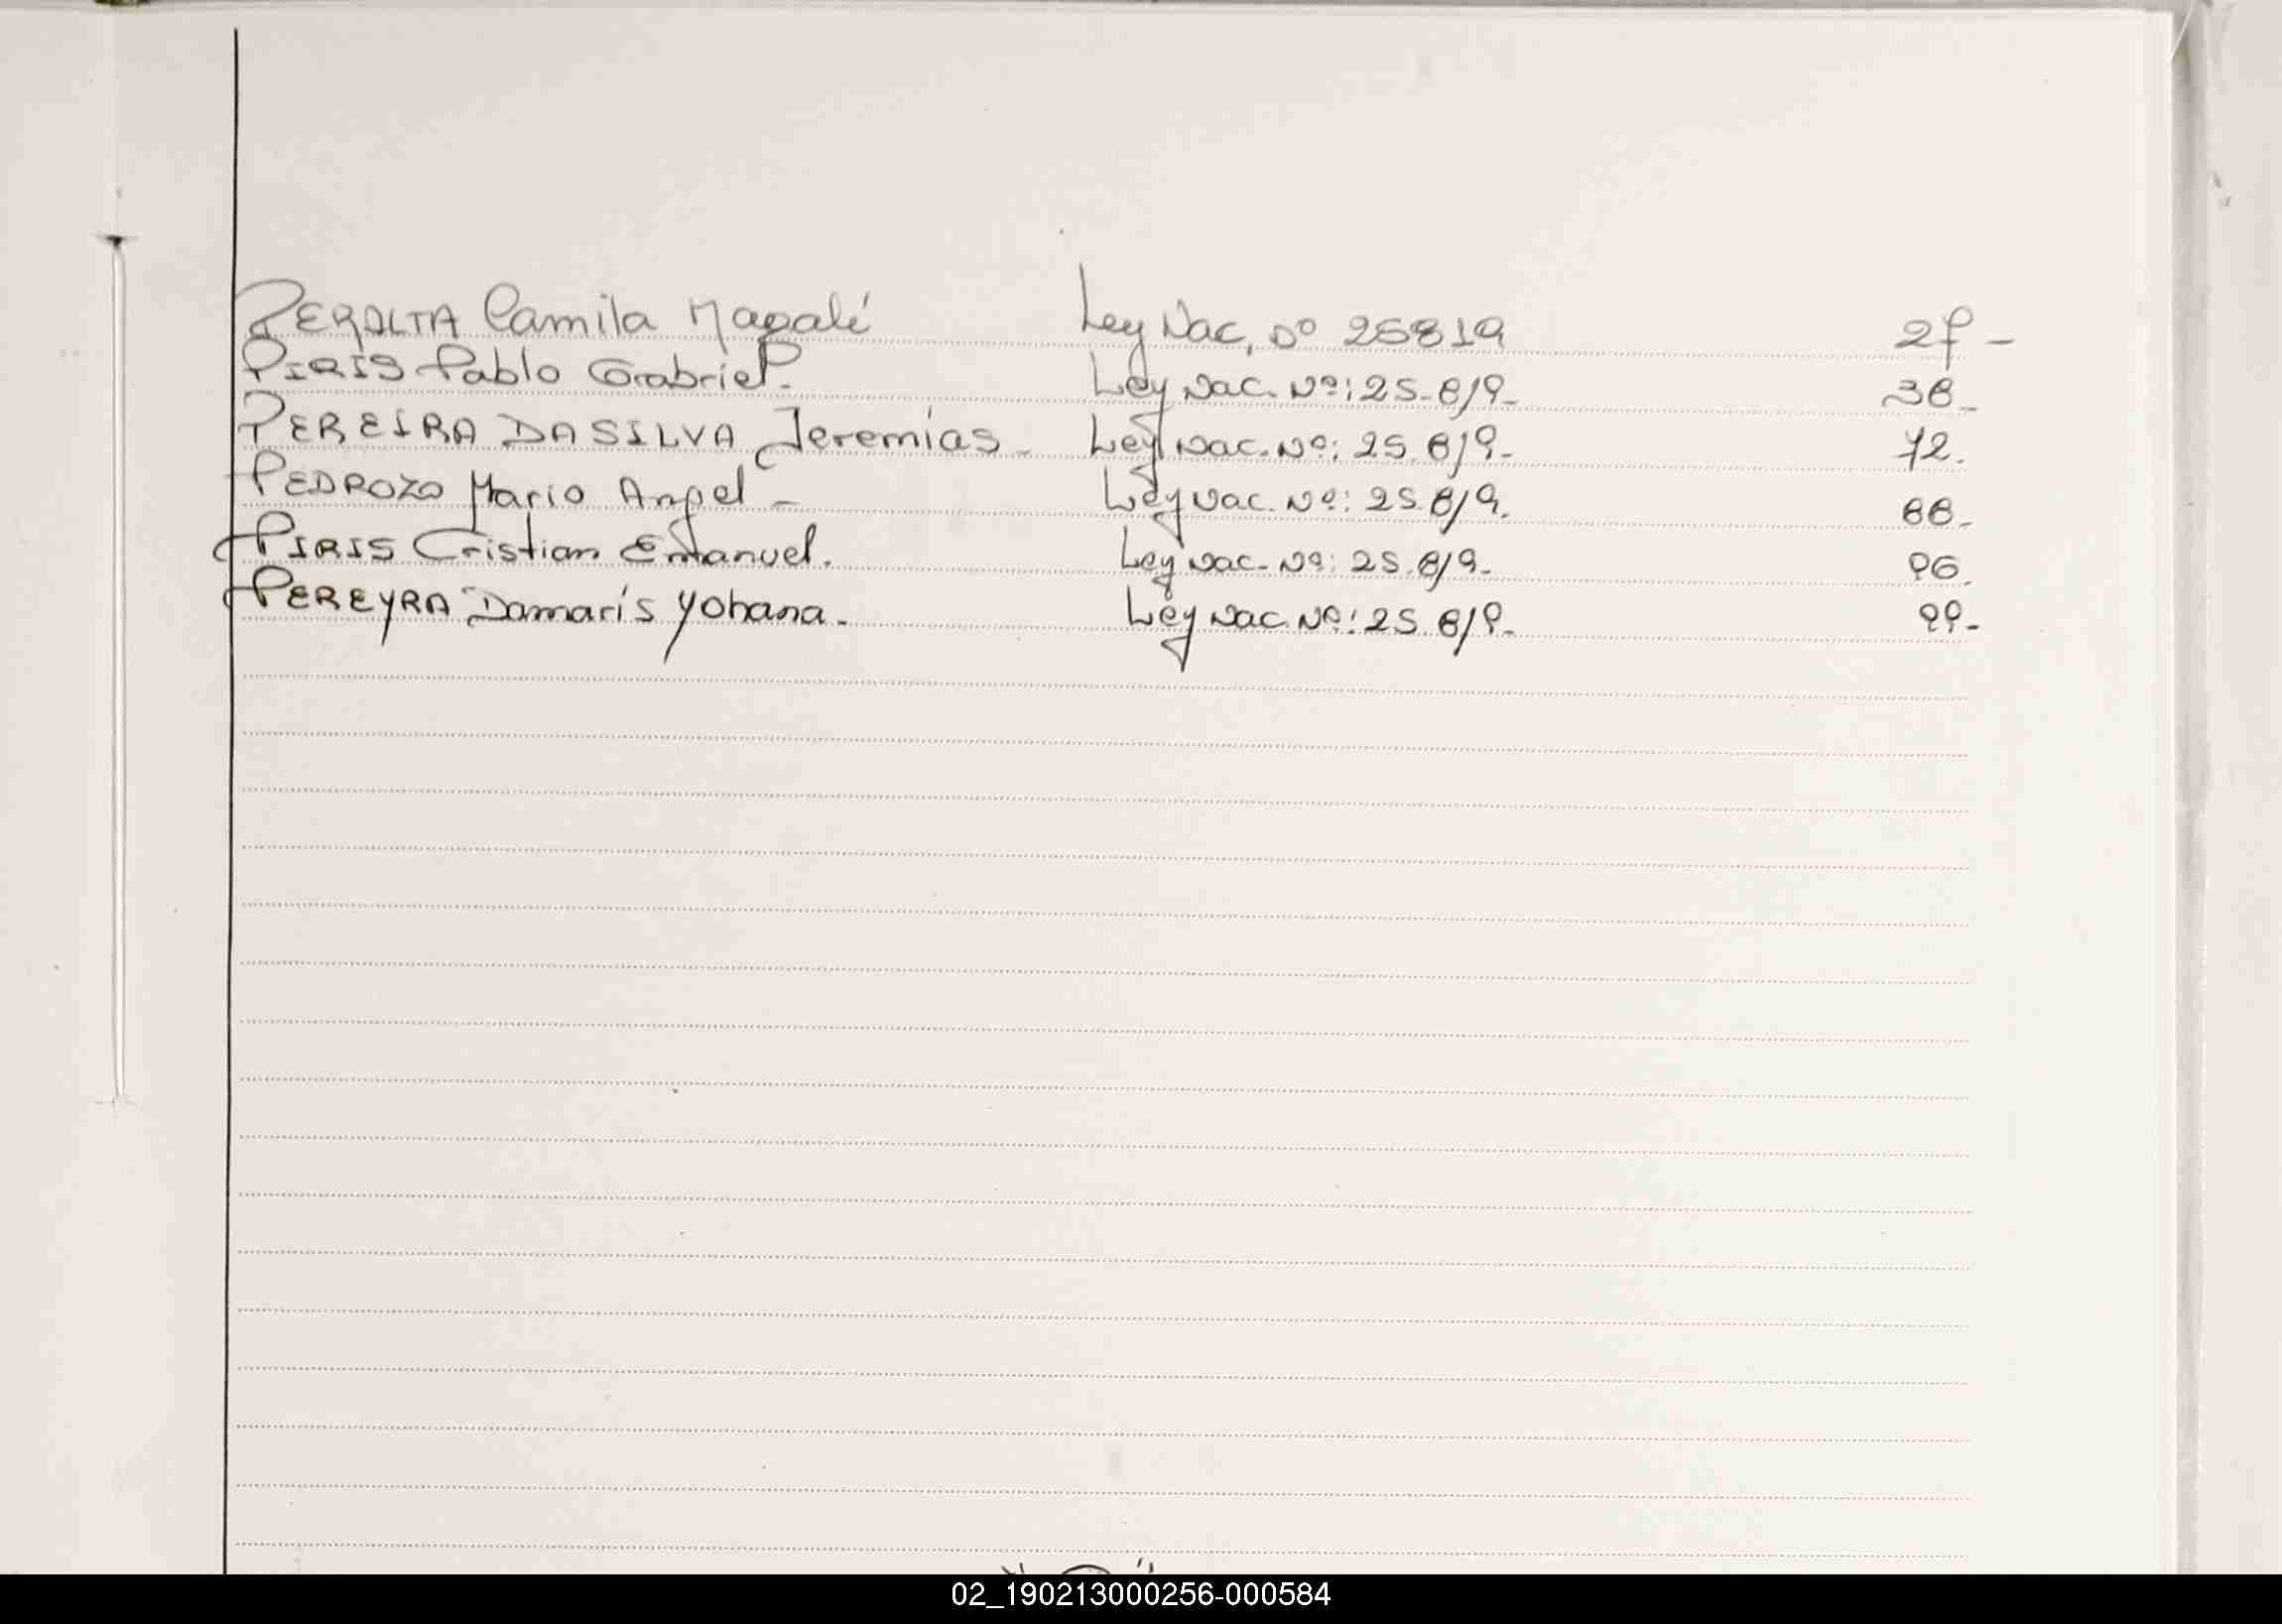 PERALTA Camila Magalí Ley Nac. Nº 25819 27-
PIRIS Pablo Gabriel.- Ley Nac. Nº: 25.819- 38-
PEREIRA DA SILVA Jeremías- Ley Nac. Nº: 25.819- 72.
PEDROZO Mario Angel- Ley Nac. Nº: 25.819. 88-
PIRIS Cristian Emanuel. Ley Nac. Nº: 25.819- 96.
PEREYRA Damarís Yohana. Ley Nac. Nº: 25.819- 99-
02_190213000256-000584